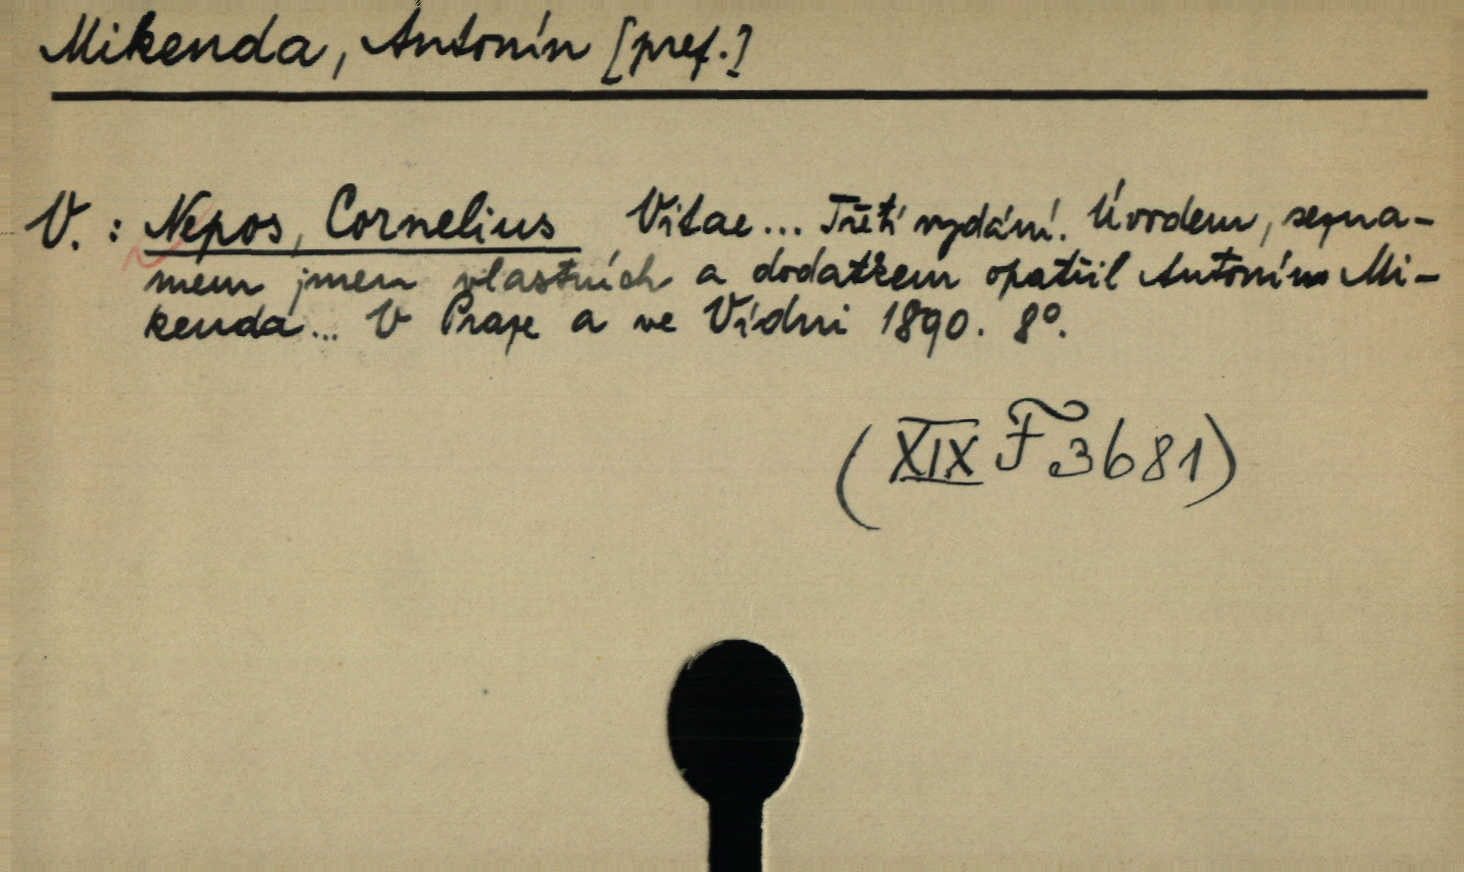 Mikenda, Antonín [pref.]
V.: Nepos, Cornelius Vitae... Třetí vydání. Úvodem, sezna-
mem jmen vlastních a dodatkem opatřil Antonín Mi-
kenda... V Praze a ve Vídni 1890. 8°.
(XIX F 3681)